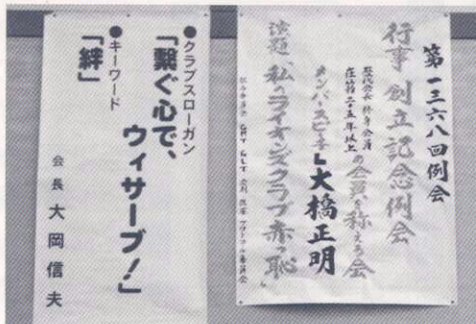 第一三六八回例会
行事 創立記念例会
歴代会長 終身会員
在籍二十五年以上
の会員を称える会
メンバースピーチ L大橋正明
演題「私のライオンズクラブ赤っ恥」
●クラブスローガン
「繋ぐ心で、
ウィサーブ!」
●キーワード
「絆」
会長 大岡信夫